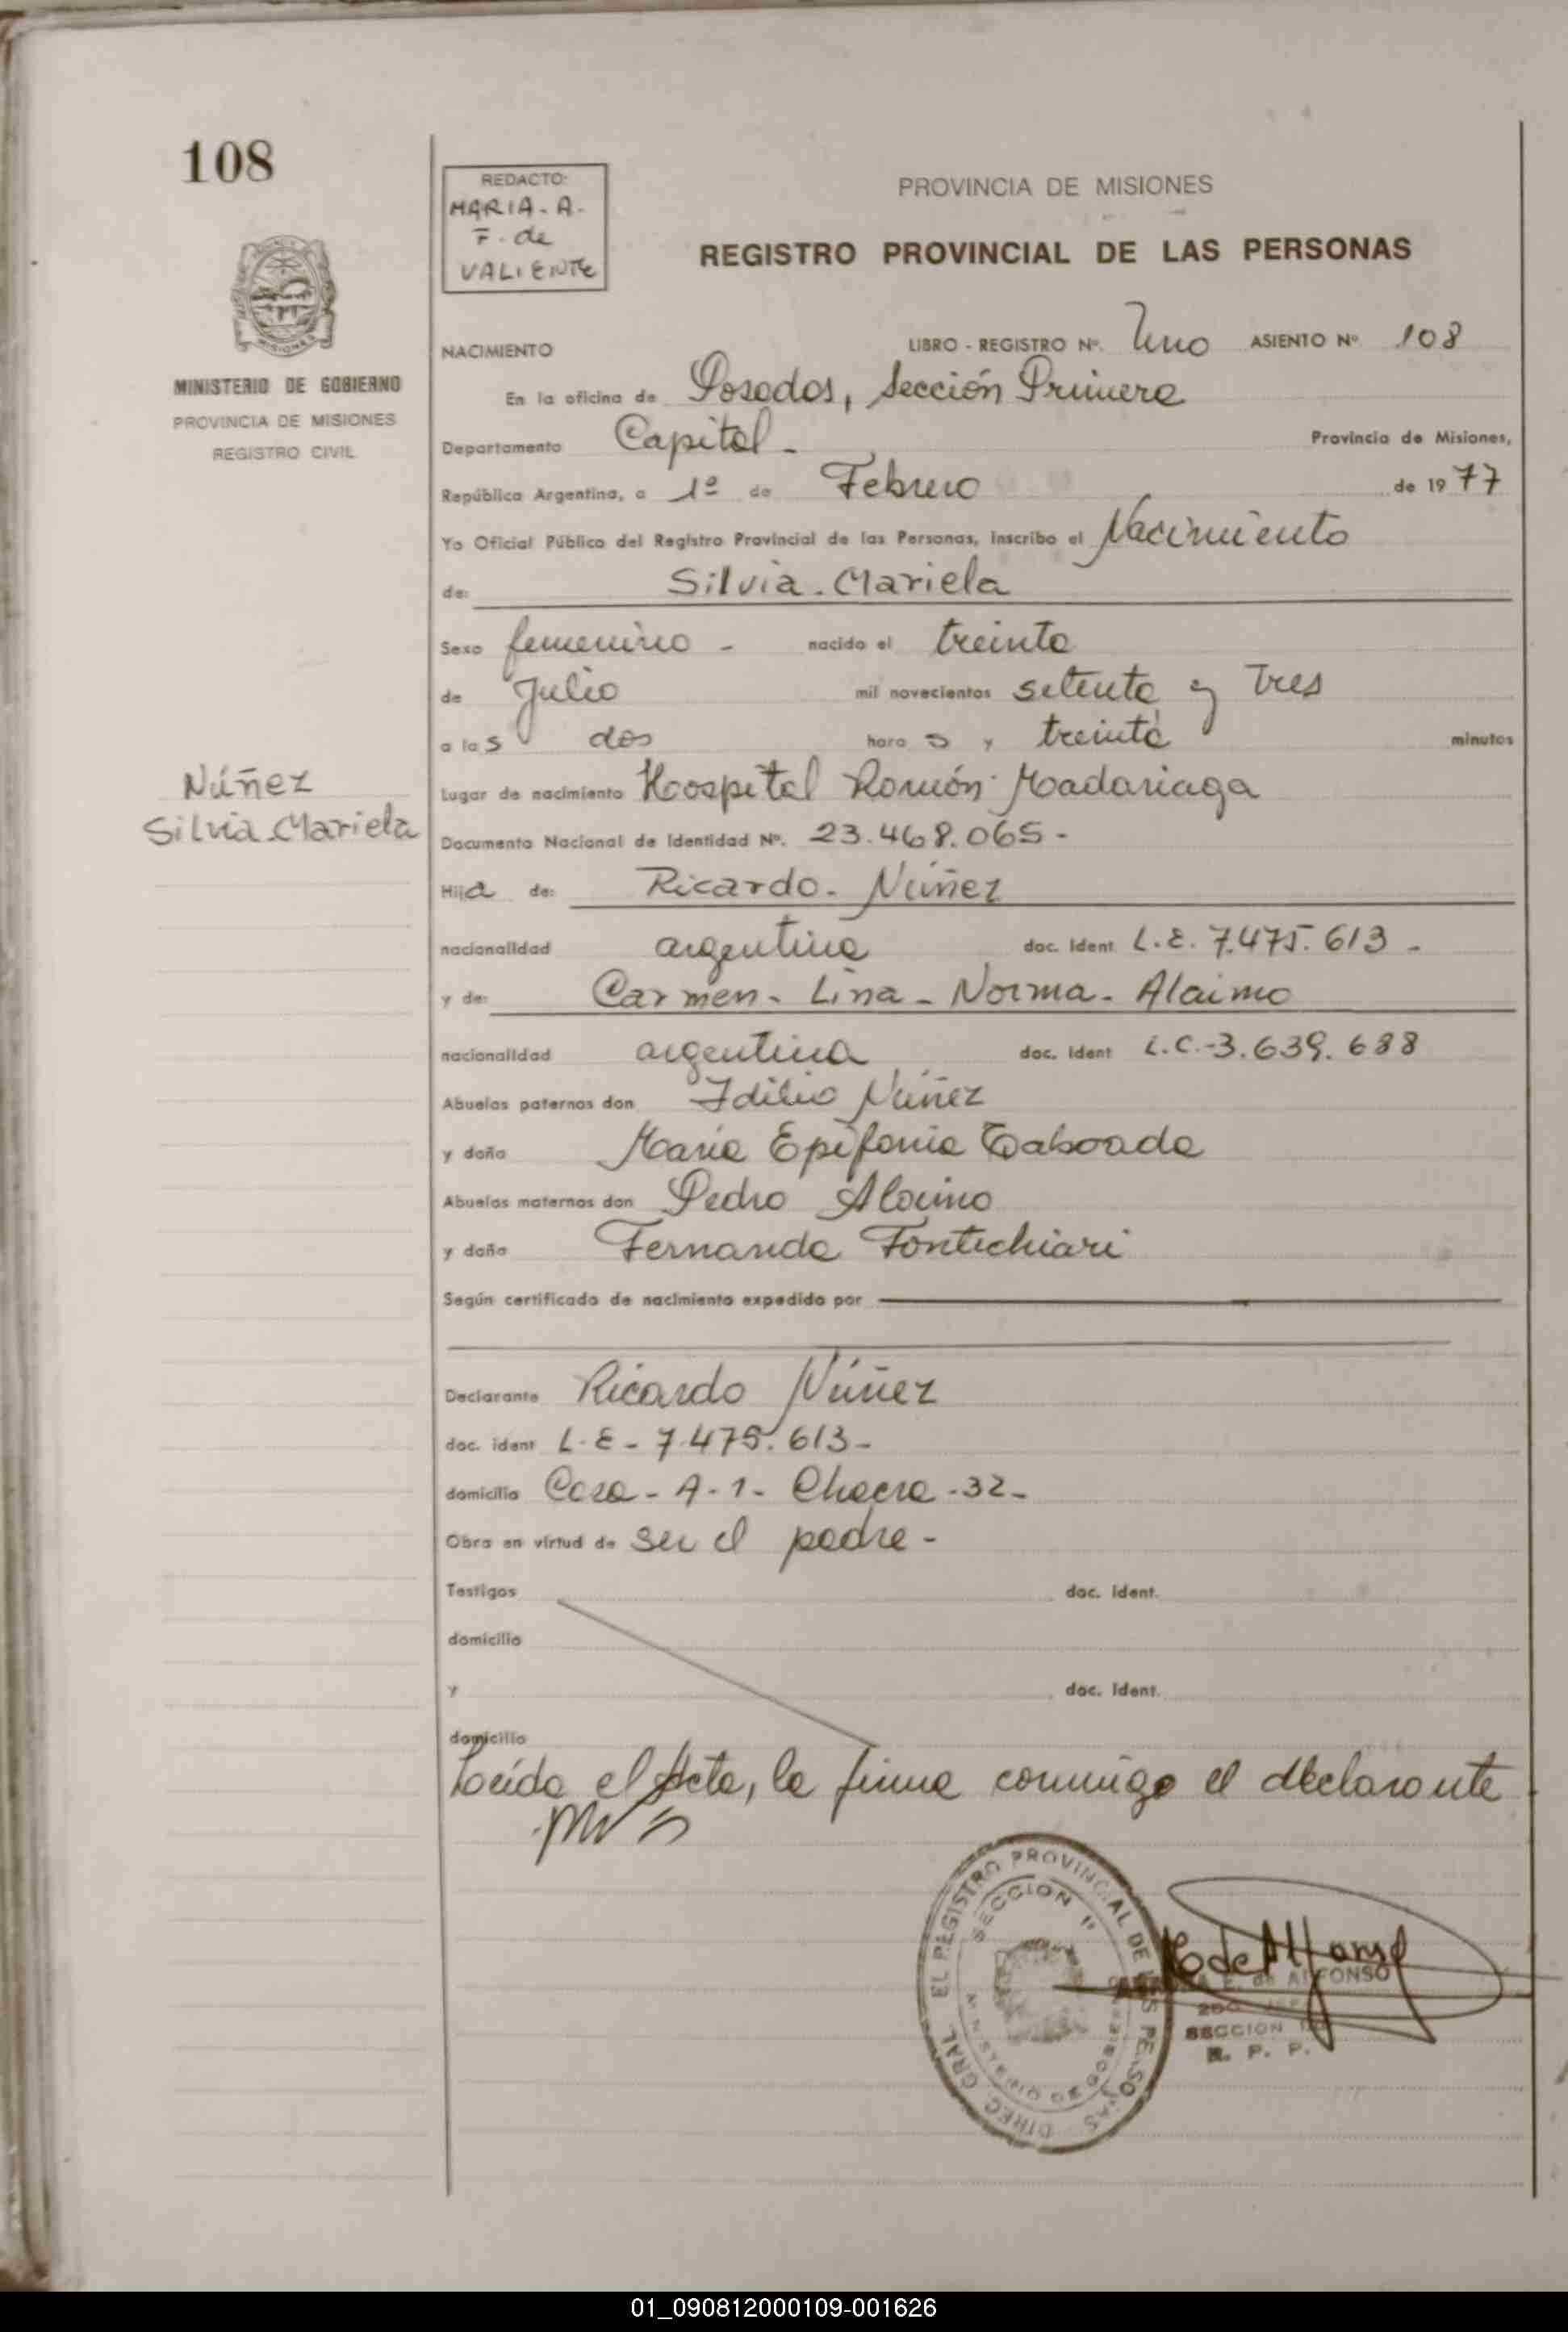 108
REDACTO:
MARIA - A -
F. de
VALIENTE
PROVINCIA DE MISIONES
REGISTRO PROVINCIAL DE LAS PERSONAS
MINISTERIO DE GOBIERNO
PROVINCIA DE MISIONES
REGISTRO CIVIL
NACIMIENTO LIBRO - REGISTRO Nº. Uno ASIENTO Nº 108
En la oficina de Posadas, Sección Primera
Departamento Capital - Provincia de Misiones,
República Argentina, a 1º de Febrero de 1977
Yo Oficial Público del Registro Provincial de las Personas, inscribo el Nacimiento
de: Silvia - Mariela
Sexo femenino - nacido el treinta
de Julio mil novecientos setenta y tres
a las dos horas y treinta minutos
Núñez
Silvia Mariela
Lugar de nacimiento Hospital Ramón Madariaga
Documento Nacional de Identidad Nº. 23.468.065 -
Hija de: Ricardo - Núñez
nacionalidad argentina doc. ident L.E. 7.475.613 -
y de: Carmen - Lina - Norma - Alaimo
nacionalidad argentina doc. ident L.C.-3.639.688
Abuelos paternos don Idilio Núñez
y doña María Epifania Taboada
Abuelos maternos don Pedro Alaimo
y doña Fernanda Fontechiari
Según certificado de nacimiento expedido por
Declarante Ricardo Núñez
doc. ident L.E - 7.475.613 -
domicilio Casa - A - 1 - Chacra - 32 -
Obra en virtud de ser el padre -
Testigos doc. ident.
domicilio
y doc. ident.
domicilio
Leída el Acta, la firma conmigo el declarante
DIREC. GRAL. EL REGISTRO PROVINCIAL DE LAS PERSONAS
SECCION 1ª
MINISTERIO DE GOBIERNO
de ALFONSO
SECCION
R. P. P.
01_090812000109-001626